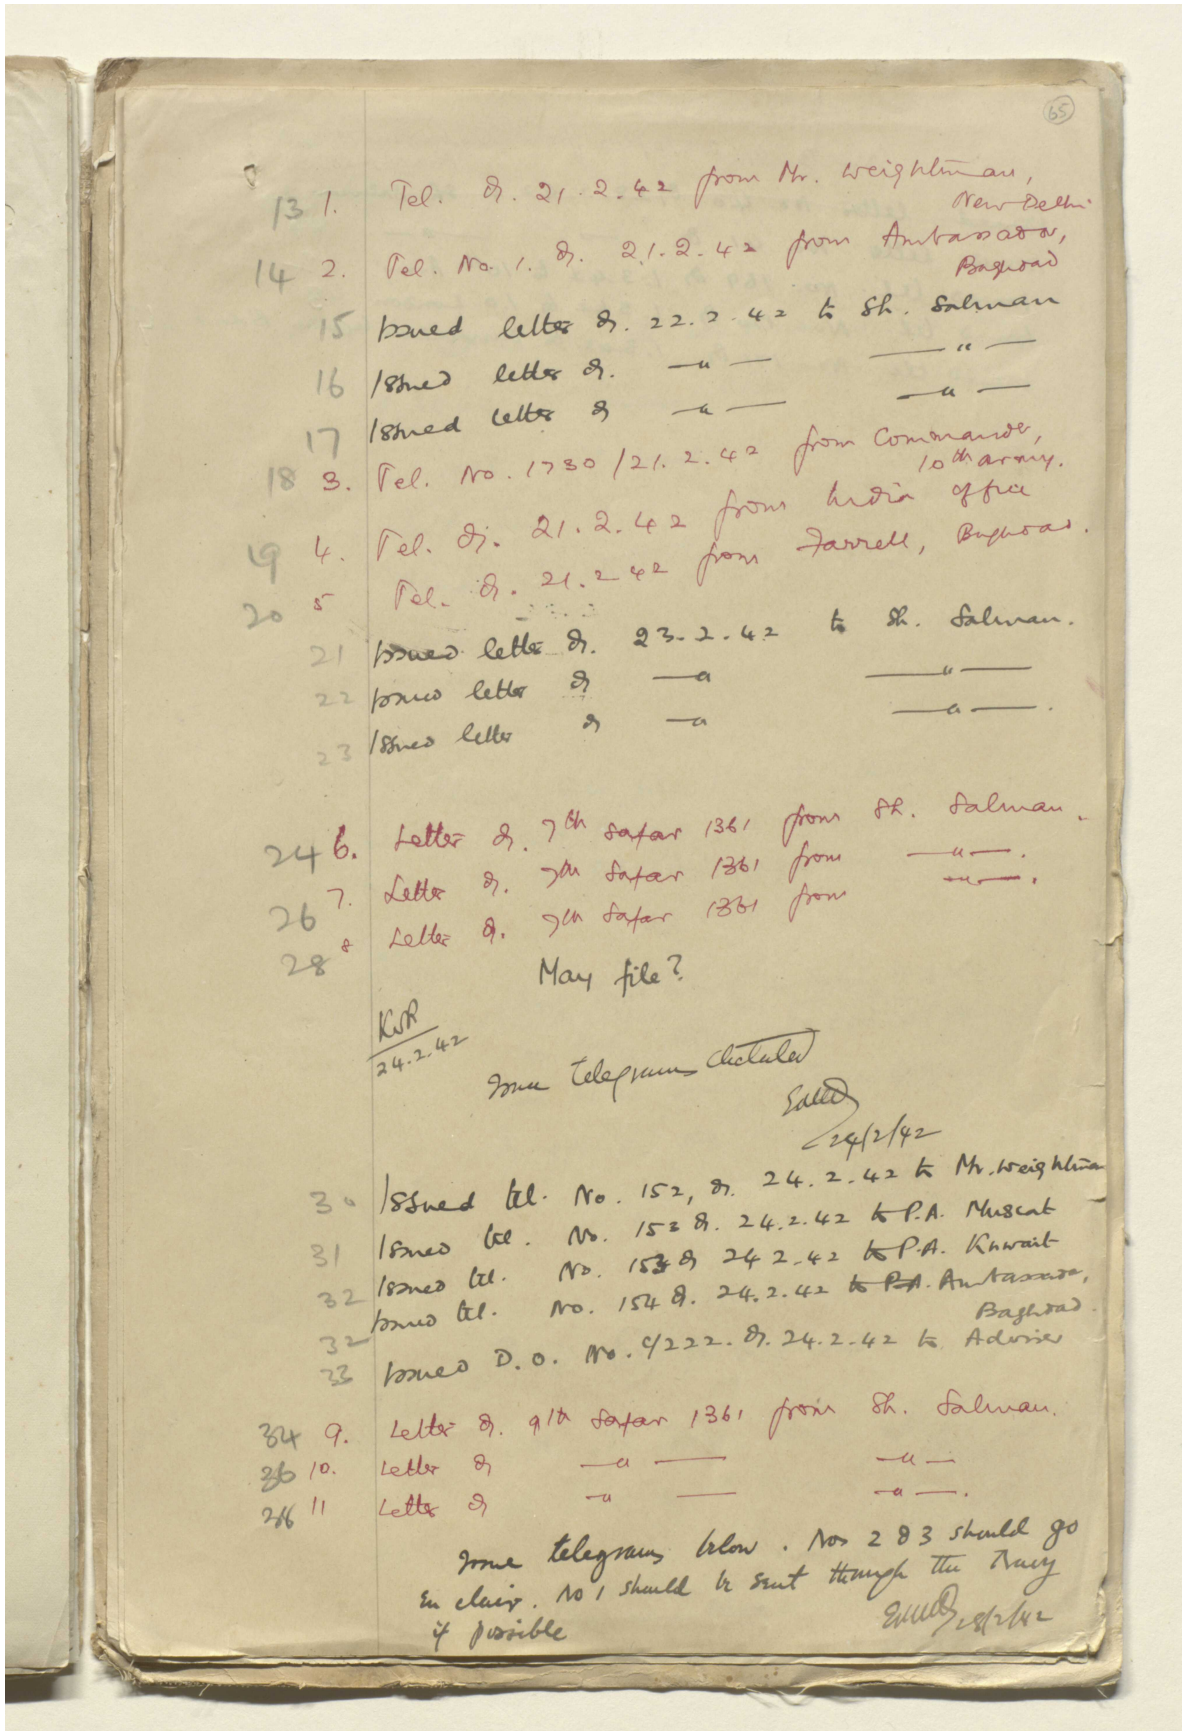 65
13 1. Tel. d. 21.2.42 from Mr. Weightman,
New Delhi
14 2. Tel. No. 1. d. 21.2.42 from Ambassador,
Baghdad
15 Issued letter d. 22.2.42 to Sh. Salman
16 Issued letter d. —"— —"—
17 Issued letter d —"— —"—
18 3. Tel. No. 1730/21.2.42 from Commander,
10th army.
19 4. Tel. d. 21.2.42 from India office
20 5 Tel. d. 21.2.42 from Farrell, Baghdad.
21 Issued letter d. 23.2.42 to Sh. Salman.
22 Issued letter d —" —"—
23 Issued letter d —" —"—.
24 6. Letter d. 7th Safar 1361 from Sh. Salman.
26 7. Letter d. 7th Safar 1361 from —"—.
28 8 Letter d. 7th Safar 1361 from —"—.
May file?
24.2.42
Issue telegrams dictated
24/2/42
30 Issued tel. No. 152, d. 24.2.42 to Mr. Weightman
31 Issued tel. No. 153 d. 24.2.42 to P.A. Muscat
32 Issued tel. No. 153 d 24.2.42 to P.A. Kuwait
32 Issued tel. No. 154 d. 24.2.42 to P.A. Ambassador,
Baghdad.
33 Issued D.O. No. C/222. d. 24.2.42 to Adviser
34 9. Letter d. 9th Safar 1361 from Sh. Salman.
36 10. Letter d —"— —"—
38 11 Letter d —"— —"—.
Issue telegrams below. Nos 2 & 3 should go
en clair. No 1 should be sent through the Navy
if possible
28/2/42